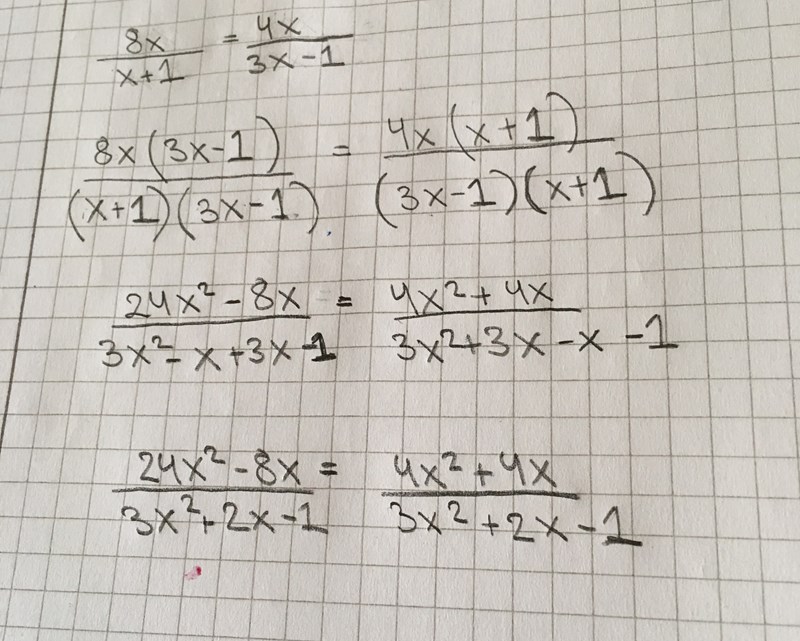 8x/(x+1) = 4x/(3x-1)
8x(3x-1)/(x+1)(3x-1) = 4x(x+1)/(3x-1)(x+1)
24x²-8x/3x²-x+3x-1 = 4x²+4x/3x²+3x-x-1
24x²-8x/3x²+2x-1 = 4x²+4x/3x²+2x-1